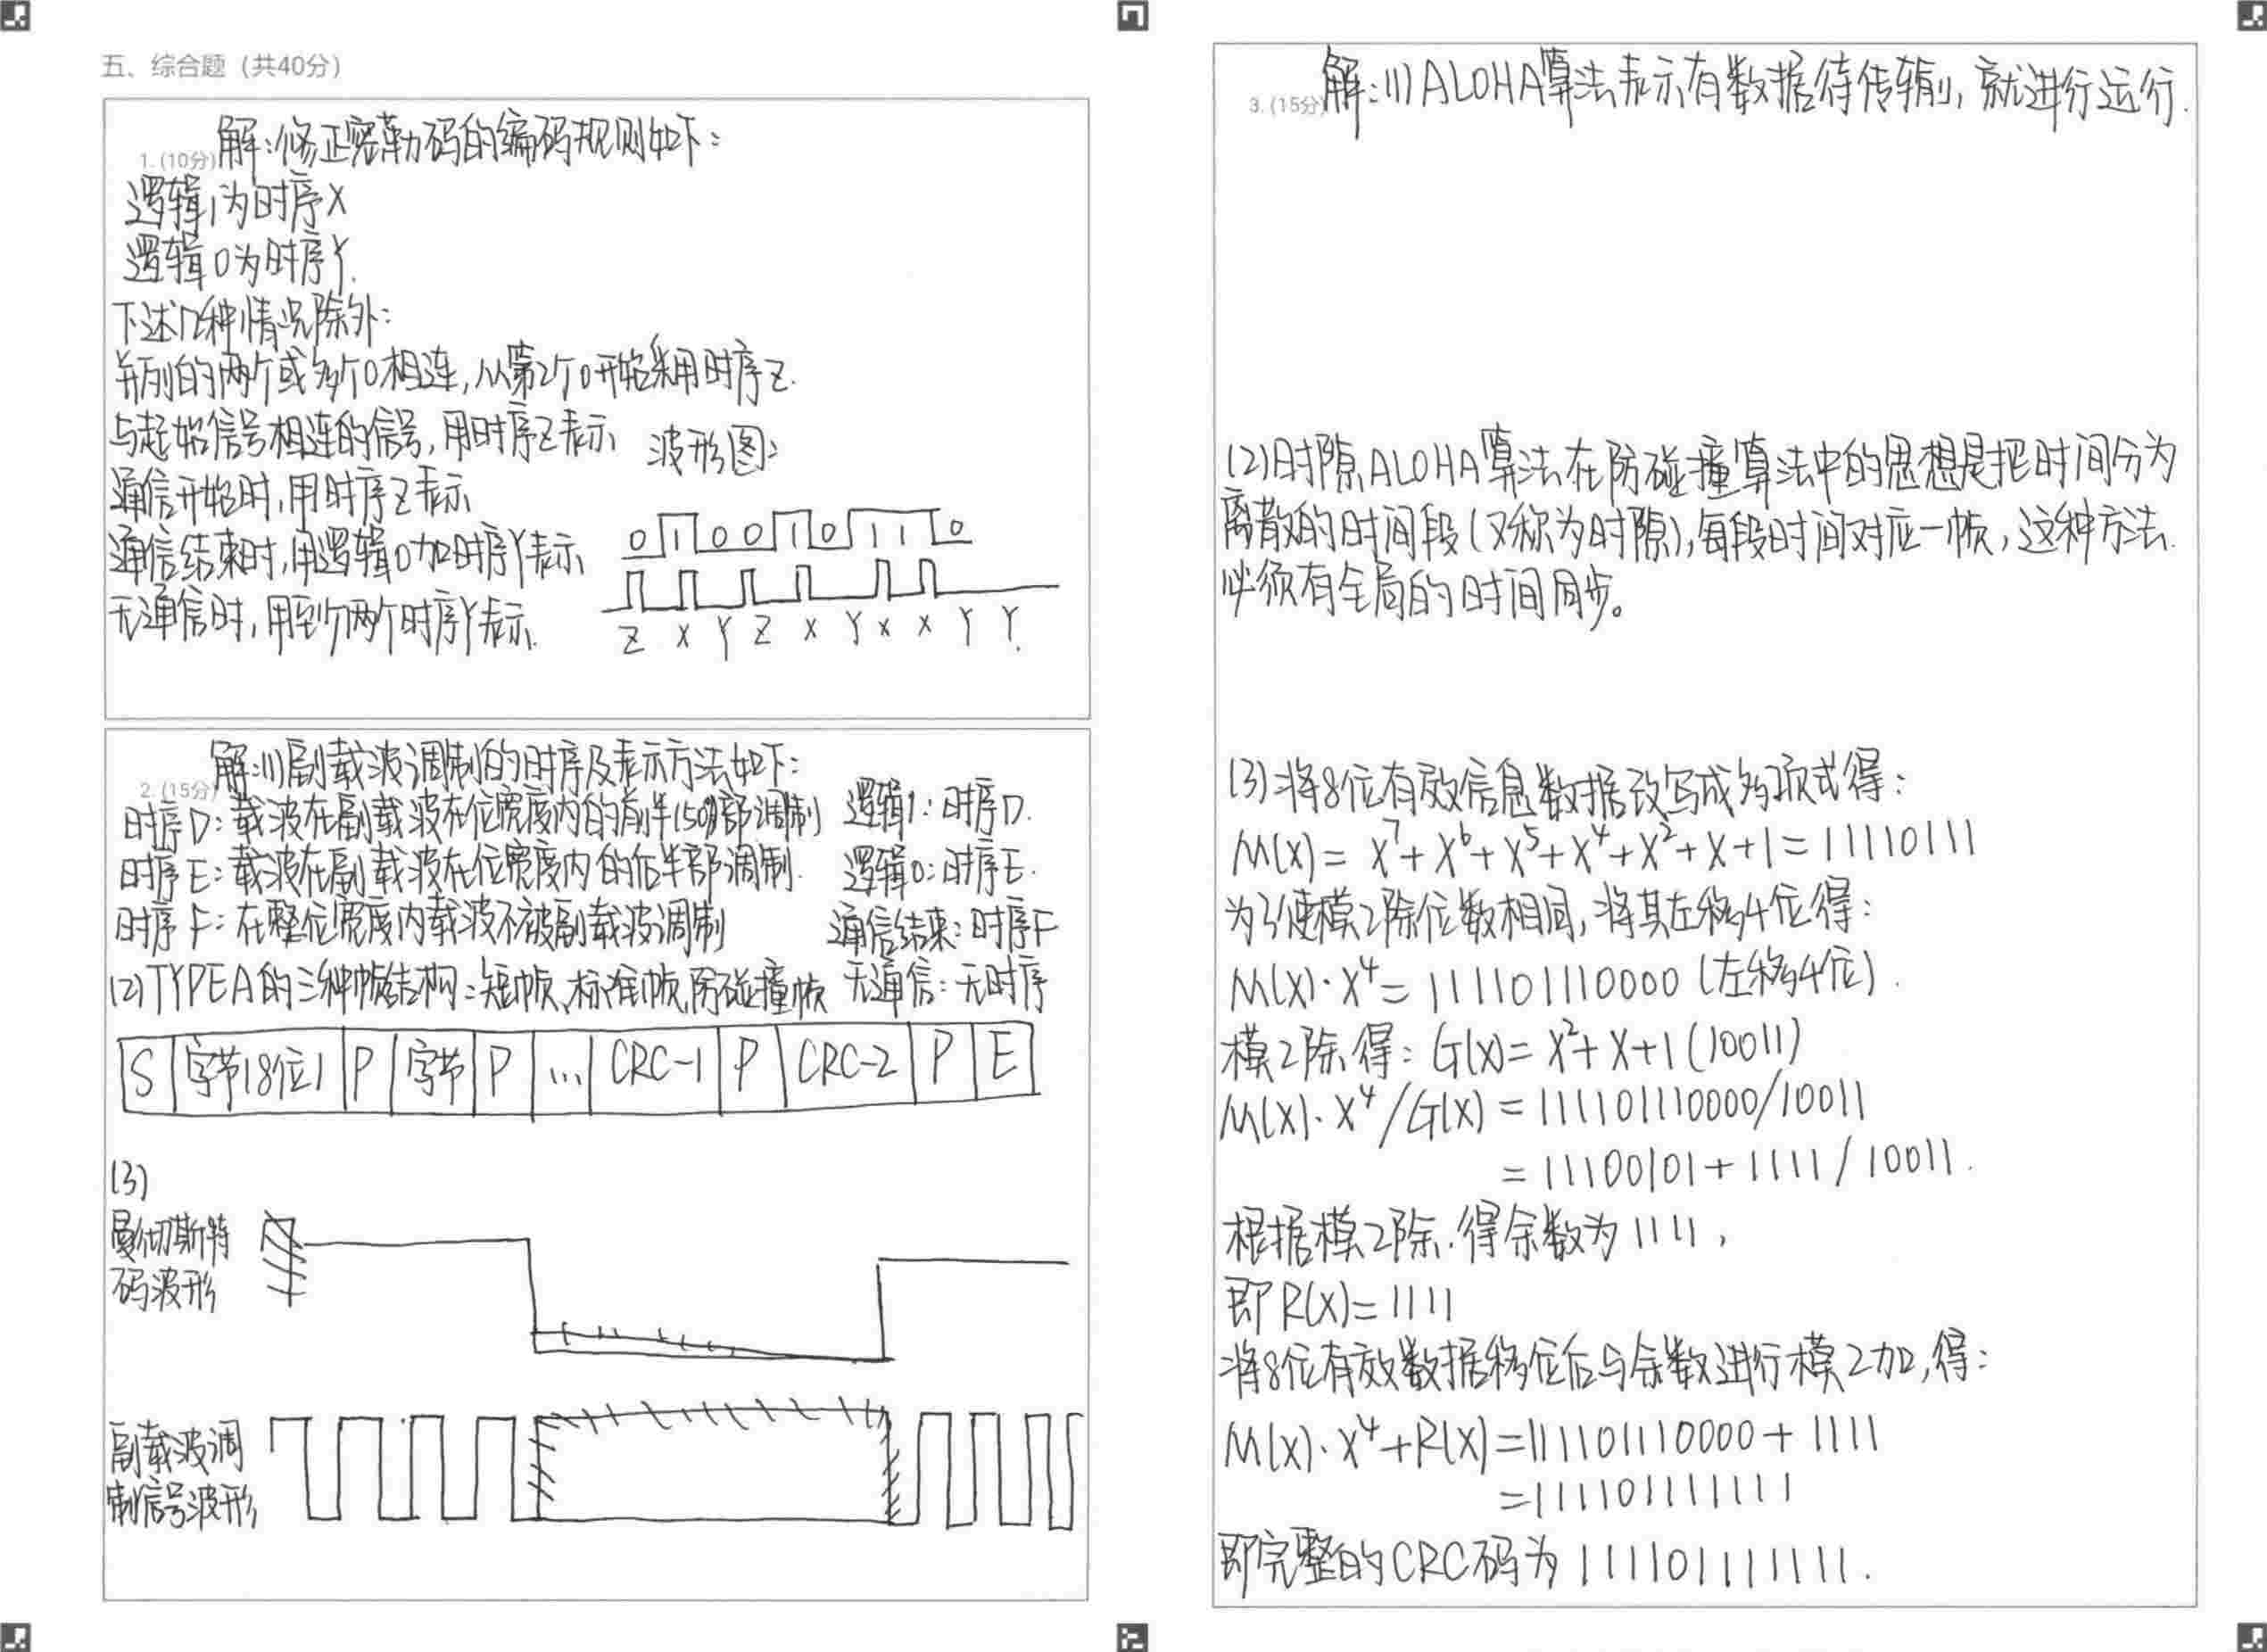 五、综合题（共40分）
1. (10分) 解：修正密勒码的编码规则如下：
逻辑1为时序X
逻辑0为时序Y.
下述几种情况除外：
并列的两个或多个0相连，从第2个0开始采用时序Z.
与起始信号相连的信号，用时序Z表示
通信开始时，用时序Z表示
通信结束时，用逻辑0加时序Y表示
无通信时，用至少两个时序Y表示.
波形图：
0 1 0 0 1 0 1 1 0
Z X Y Z X Y X X Y Y.
2. (15分) 解：(1)副载波调制的时序及表示方法如下：
时序D：载波在副载波在位宽度内的前半(50%)部调制
时序E：载波在副载波在位宽度内的后半部调制.
时序F：在整位宽度内载波不被副载波调制
逻辑1：时序D.
逻辑0：时序E.
通信结束：时序F
无通信：无时序
(2)TYPEA的三种帧结构：短帧、标准帧、防碰撞帧
S 字节(8位) P 字节 P ... CRC-1 P CRC-2 P E
(3)
曼彻斯特
码波形
副载波调
制信号波形
3. (15分) 解：(1)ALOHA算法表示有数据待传输，就进行运行.
(2)时隙ALOHA算法在防碰撞算法中的思想是把时间分为
离散的时间段(又称为时隙)，每段时间对应一帧，这种方法.
必须有全局的时间同步。
(3)将8位有效信息数据改写成多项式得：
M(X)= X⁷+X⁶+X⁵+X⁴+X²+X+1=11110111
为了使模2除位数相同，将其左移4位得：
M(X)·X⁴=111101110000(左移4位).
模2除得：G(X)=X²+X+1(10011)
M(X)·X⁴/G(X)=111101110000/10011
=11100101+1111/10011.
根据模2除.得余数为1111，
即R(X)=1111
将8位有效数据移位后与余数进行模2加，得：
M(X)·X⁴+R(X)=111101110000+1111
=111101111111
即完整的CRC码为111101111111.